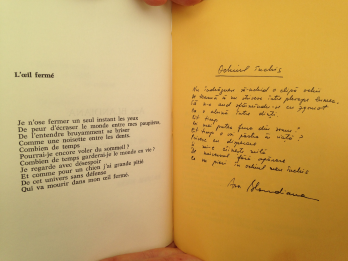 L'œil fermé
Je n'ose fermer un seul instant les yeux
De peur d'écraser le monde entre mes paupières,
De l'entendre bruyamment se briser
Comme une noisette entre les dents.
Combien de temps
Pourrai-je encore voler du sommeil ?
Combien de temps garderai-je le monde en vie ?
Je regarde avec désespoir
Et comme pour un chien j'ai grande pitié
De cet univers sans défense
Qui va mourir dans mon œil fermé.
Ochiul închis
Nu îndrăznesc să-nchid o clipă ochii
De teamă să nu zdrobesc între pleoape lumea,
Să n-o aud sfărâmându-se cu zgomot
Ca o alună între dinți.
Cât timp
Voi mai putea fura din somn?
Cât timp o voi în viață?
Privesc cu disperare
Și mi-e câinește milă
De universul fără apărare
Ce va pieri în ochiul meu închis
Ana Blandiana